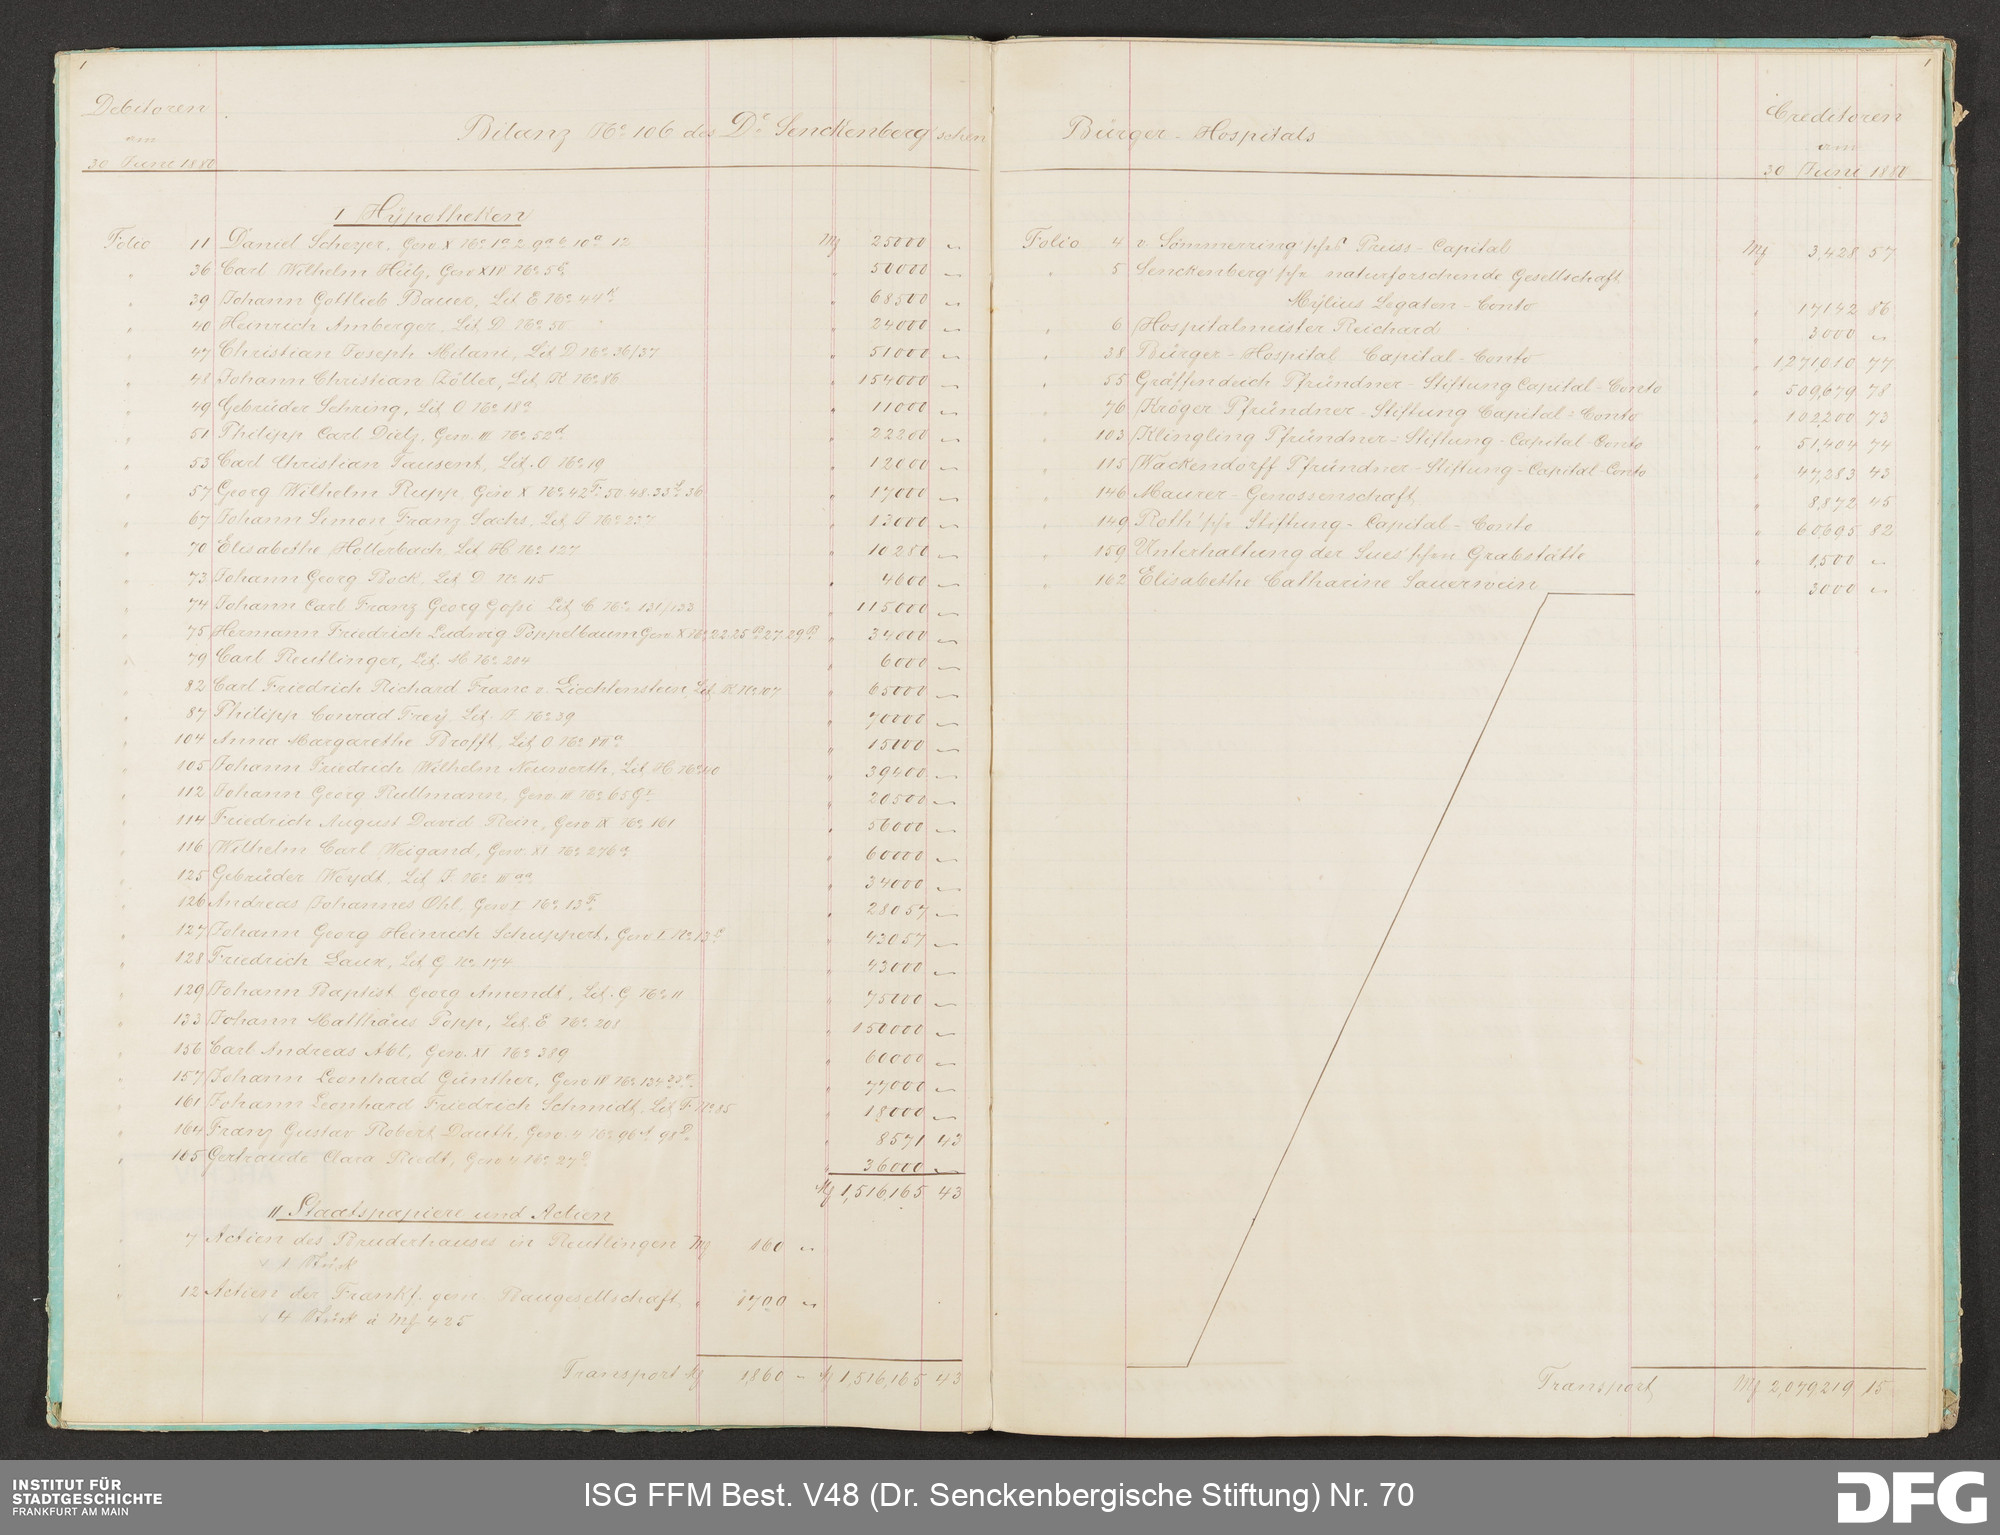 1
Debitoren
am
30 Juni 1880
Bilanz No 106 des Dr Senckenberg'schen
I Hypotheken
Folio 11 Daniel Scheyer, Gew. X No 1a 2 9a b 10a 12 Mf 25000 "
" 36 Carl Wilhelm Hütz, Gew XIV No 5 " 50000 "
" 39 Johann Gottlieb Bauer, Lit E No 44 " 68500 "
" 40 Heinrich Amberger, Lit D No 50 " 24000 "
" 47 Christian Joseph Milani, Lit D No 36/37 " 51000 "
" 48 Johann Christian Zöller, Lit K No 86 " 154000 "
" 49 Gebrüder Sehring, Lit O No 18a " 11000 "
" 51 Philipp Carl Dietz, Gew. III No 52d " 22200 "
" 53 Carl Christian Tausent, Lit. O No 19 " 12000 "
" 57 Georg Wilhelm Rupp, Gew X No 42 50. 48. 33 36 " 17000 "
" 67 Johann Simon Franz Sachs, Lit No 237 " 13000 "
" 70 Elisabethe Hollerbach, Lit H No 127 " 10280 "
" 73 Johann Georg Bock, Lit D No 115 " 4600 "
" 74 Johann Carl Franz Georg Lit C No 131/133 " 115000 "
" 75 Hermann Friedrich Ludwig Poppelbaum Gew. X No 22. 25 27. 29 " 34000 "
" 79 Carl Reutlinger, Lit. M No 204 " 6000 "
" 82 Carl Friedrich Richard Franc v. Liechtenstein, Lit. K No 107 " 65000 "
" 87 Philipp Conrad Frey, Lit. No 39 " 70000 "
" 104 Anna Margarethe Brofft, Lit O No " 15000 "
" 105 Johann Friedrich Wilhelm Neuwerth, Lit H No 40 " 39400 "
" 112 Johann Georg Rullmann, Gew. III No 65 " 20500 "
" 114 Friedrich August David Rein, Gew IX No 161 " 56000 "
" 116 Wilhelm Carl Weigand, Gew. XI No 276a " 60000 "
" 125 Gebrüder Weydt, Lit J. No " 34000 "
" 126 Andreas Johannes Ohl, Gew I No 13F " 28057 "
" 127 Johann Georg Heinrich Schuppert, Gew I No 13 " 43057 "
" 128 Friedrich Laux, Lit G No 174 " 43000 "
" 129 Johann Baptist Georg Amendt, Lit. G No 11 " 75000 "
" 133 Johann Matthäus Popp, Lit. E No 201 " 150000 "
" 156 Carl Andreas Abt, Gew. XI No 389 " 60000 "
" 157 Johann Leonhard Günther, Gew IV No 134 " 77000 "
" 161 Johann Leonhard Friedrich Schmidt, Lit F No 85 " 18000 "
" 164 Franz Gustav Robert Dauth, Gew. No 96 98 " 8571 43
" 165 Gertraude Clara Riedt, Gew No 27 " 36000 "
Mf 1,516,165 43
II Staatspapiere und Actien
" 7 Actien des Bruderhauses in Reutlingen Mf 160 "
v 1 Stück
" 12 Actien der Frankf. gem. Baugesellschaft " 1700 "
v 4 Stück à Mf 425
Transport Mf 1,860 - Mf 1,516,165 43
1
Bürger-Hospitals
Creditoren
am
30 Juni 1880
Folio 4 v. Sömmerring'scher Preiss-Capital Mf 3,428 57
" 5 Senckenberg'sche naturforschende Gesellschaft
Mylius Legaten-Conto " 17142 86
" 6 Hospitalmeister Reichard " 3000 "
" 38 Bürger-Hospital Capital-Conto " 1,271,010 77
" 55 Gräffendeich Pfründner-Stiftung Capital-Conto " 509,679 78
" 76 Kröger Pfründner-Stiftung Capital-Conto " 102200 73
" 103 Klingling Pfründner-Stiftung-Capital-Conto " 51,404 74
" 115 Wackendorff Pfründner-Stiftung-Capital-Conto " 47,283 43
" 146 Maurer-Genossenschaft " 8,872 45
" 149 Roth'sche Stiftung-Capital-Conto " 60,695 82
" 159 Unterhaltung der Sues'schen Grabstätte " 1,500 "
" 162 Elisabethe Catharine Sauerwein " 3000 "
Transport Mf 2,079,219 15
INSTITUT FÜR
STADTGESCHICHTE
FRANKFURT AM MAIN
ISG FFM Best. V48 (Dr. Senckenbergische Stiftung) Nr. 70
DFG